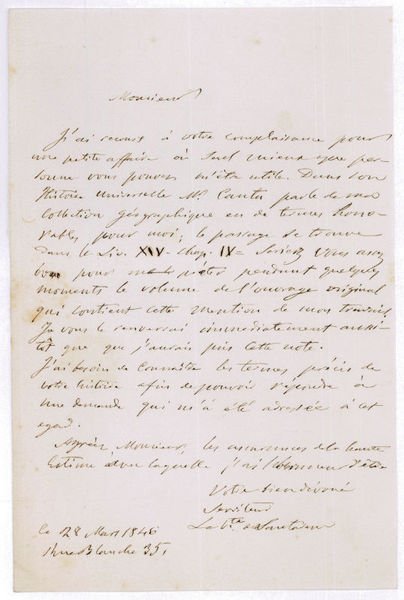 Monsieur
J'ai recours à votre complaisance pour
une petite affaire à mieux que per-
sonne vous pouvez m'être utile. Dans son
Histoire universelle Mr. Cantu parle de ma
Collection géographique en de termes hono-
rables pour moi; le passage se trouve
dans le Liv. XIV - chap. IX = Seriez vous assez
bon pour me pendant quelques
moments le volume de l'ouvrage original
qui contient cette mention de mes travaux
Je vous le renverrai immédiatement aussi-
tôt que que j'aurais pris cette note.
J'ai besoin de connaître les termes précis de
votre histoire afin de pouvoir répondre à
une demande qui m'a été adressée à cet
egard.
Agréez, Monsieur, les assurances de la haute
Estime avec laquelle j'ai l'honneur d'être
Votre bien dévoué
Serviteur
Le Vte. de Santarem
Ce 28 Mars 1846
Rue Blanche 35,